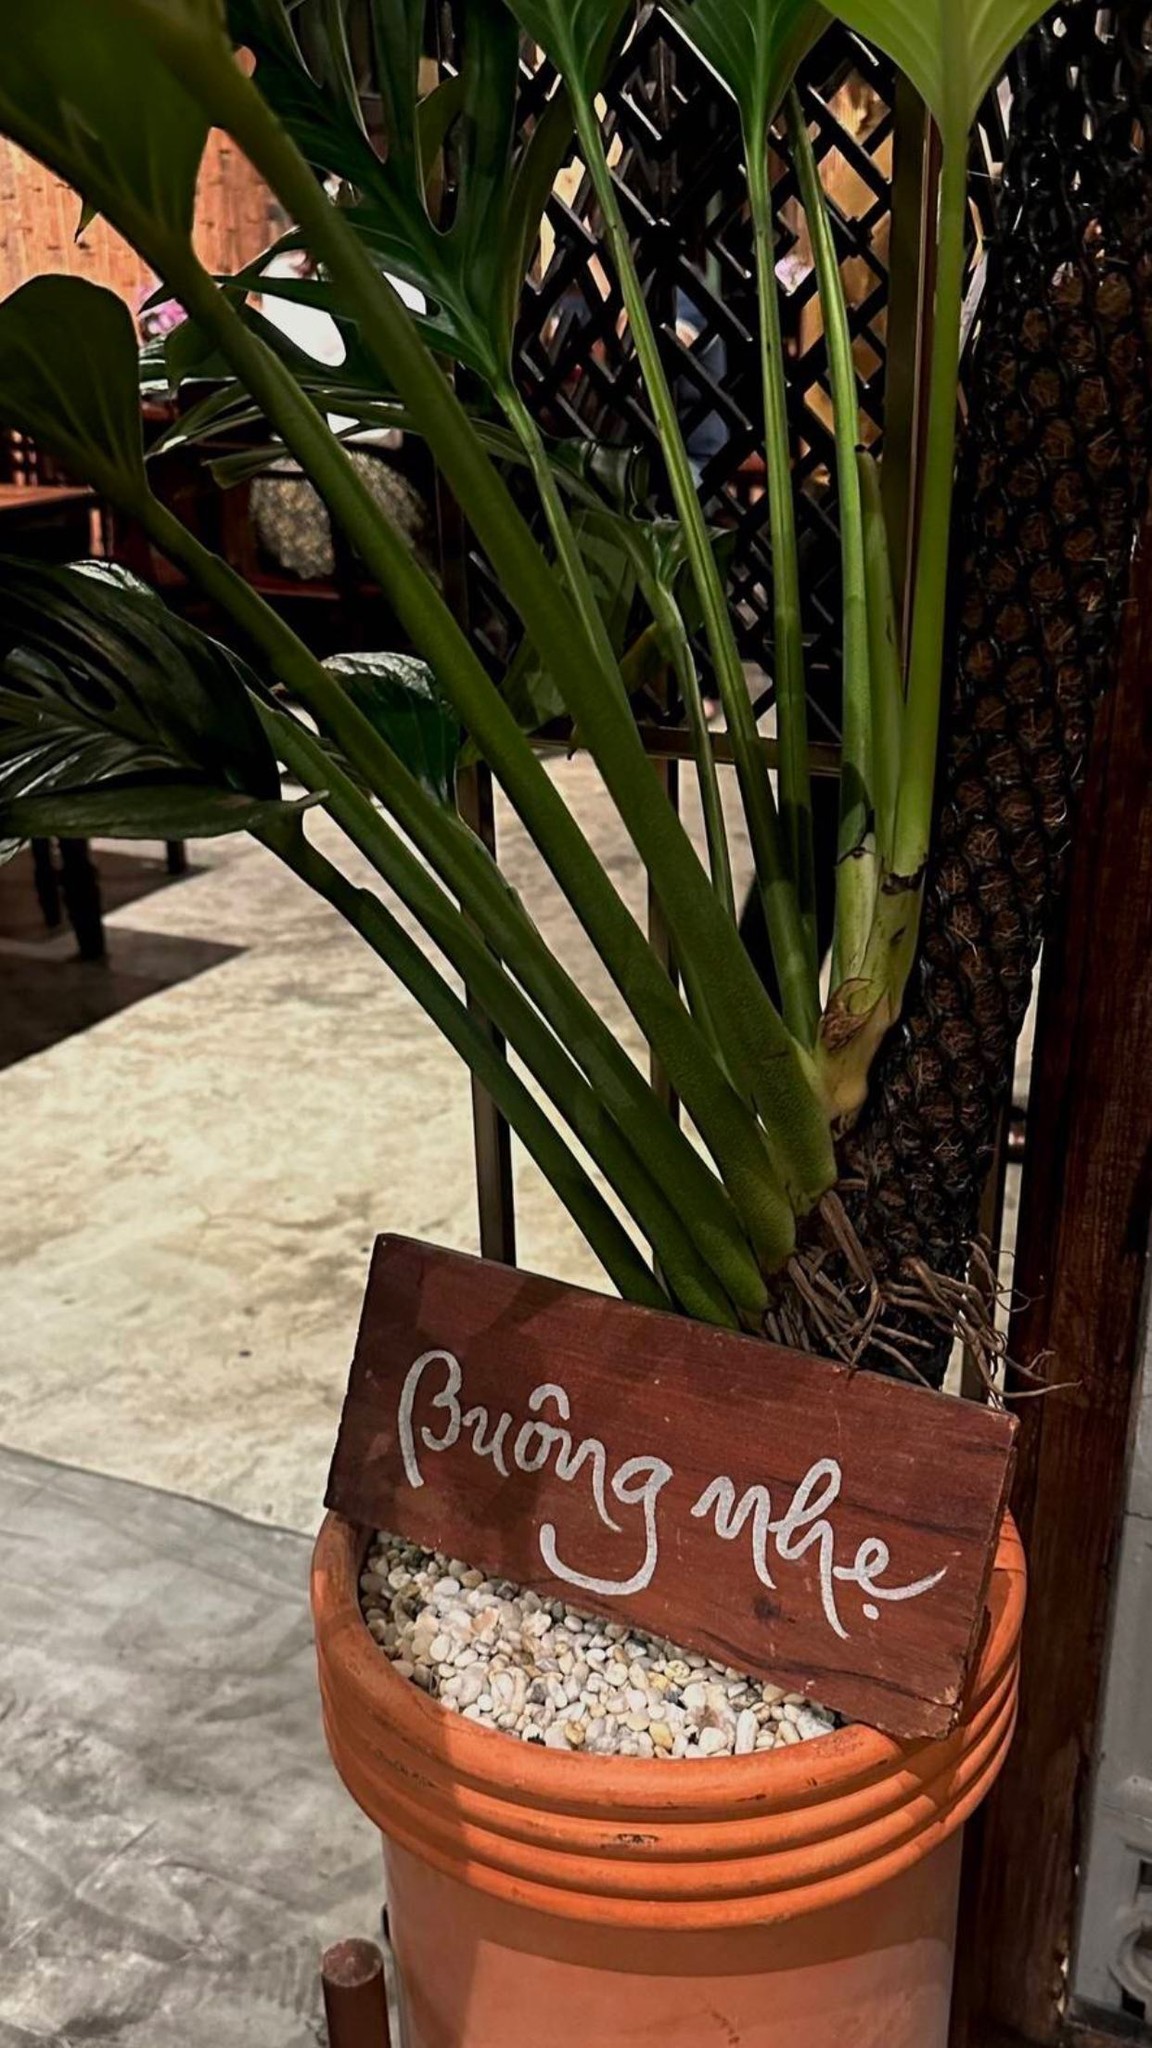 Buông nhẹ